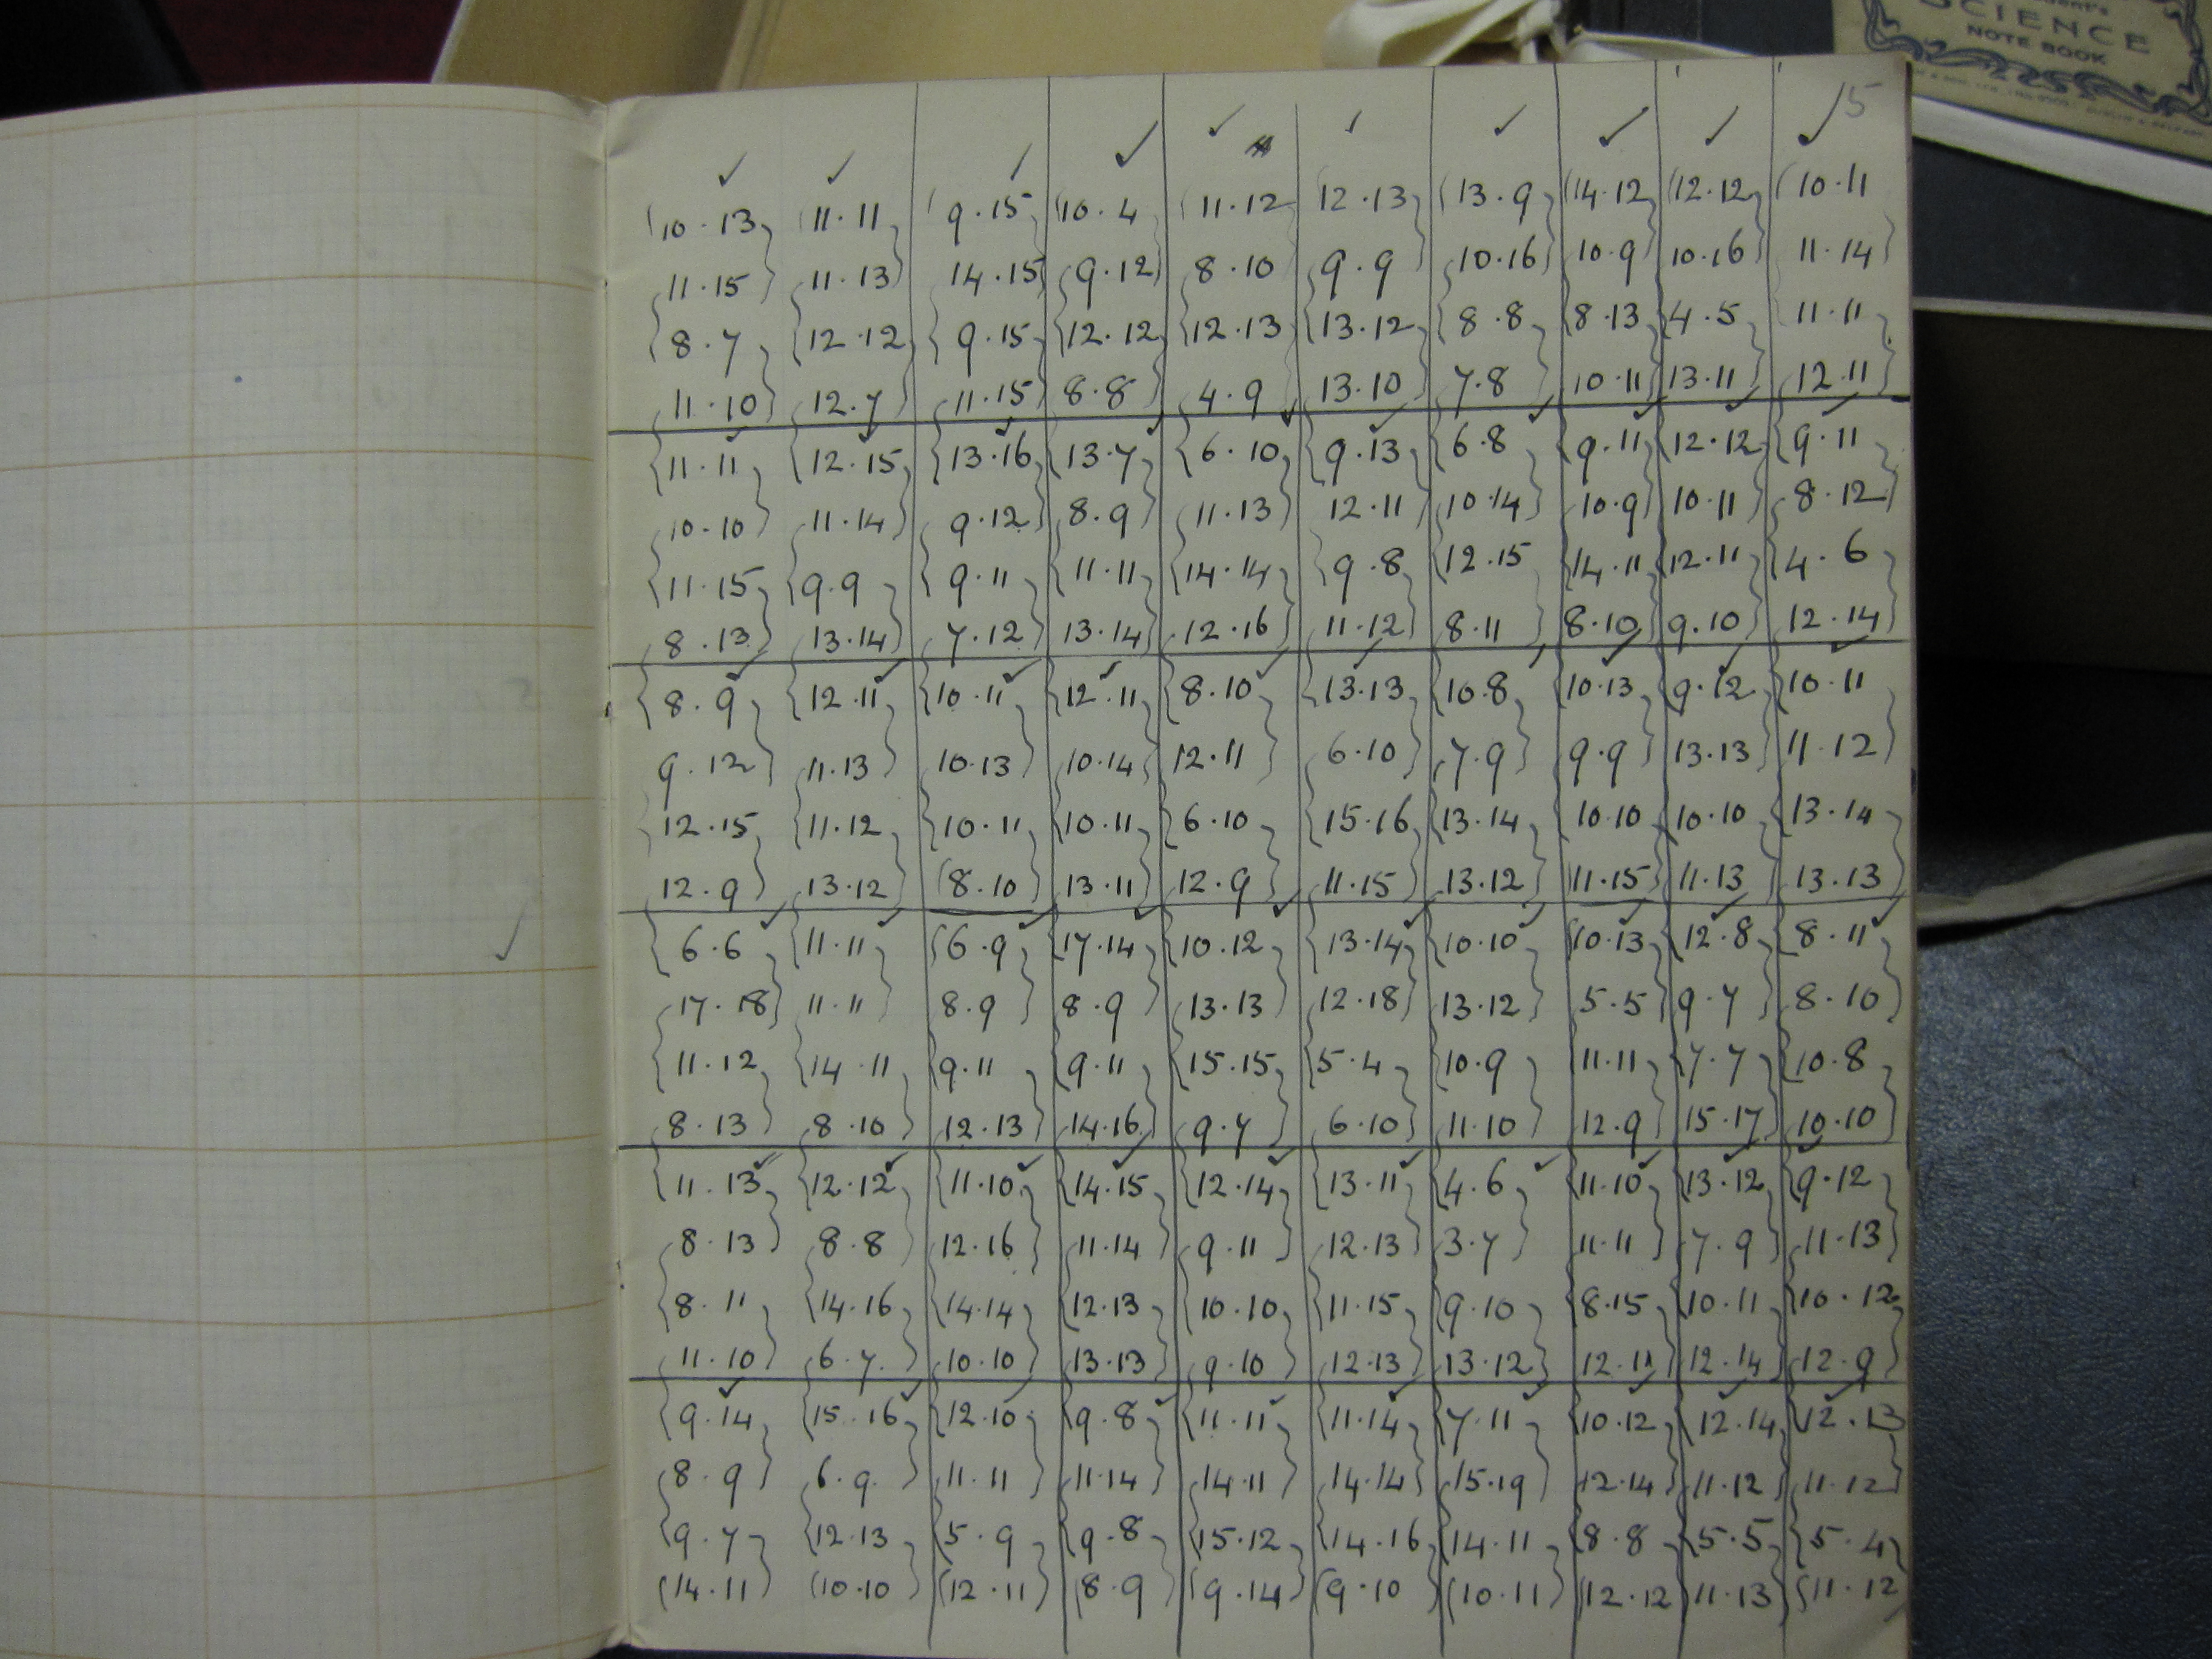 Student's
SCIENCE
NOTE BOOK
5
10.13 11.11 9.15 10.4 11.12 12.13 13.9 14.12 12.12 10.11
11.15 11.13 14.15 9.12 8.10 9.9 10.16 10.9 10.16 11.14
8.7 12.12 9.15 12.12 12.13 13.12 8.8 8.13 4.5 11.11
11.10 12.7 11.15 8.8 4.9 13.10 7.8 10.11 13.11 12.11
11.11 12.15 13.16 13.7 6.10 9.13 6.8 9.11 12.12 9.11
10.10 11.14 9.12 8.9 11.13 12.11 10.14 10.9 10.11 8.12
11.15 9.9 9.11 11.11 14.14 9.8 12.15 14.11 12.11 4.6
8.13 13.14 7.12 13.14 12.16 11.12 8.11 8.10 9.10 12.14
8.9 12.11 10.11 12.11 8.10 13.13 10.8 10.13 9.12 10.11
9.12 11.13 10.13 10.14 12.11 6.10 7.9 9.9 13.13 11.12
12.15 11.12 10.11 10.11 6.10 15.16 13.14 10.10 10.10 13.14
12.9 13.12 8.10 13.11 12.9 11.15 13.12 11.15 11.13 13.13
6.6 11.11 6.9 17.14 10.12 13.14 10.10 10.13 12.8 8.11
17.18 11.11 8.9 8.9 13.13 12.18 13.12 5.5 9.7 8.10
11.12 14.11 9.11 9.11 15.15 5.4 10.9 11.11 7.7 10.8
8.13 8.10 12.13 14.16 9.7 6.10 11.10 12.9 15.17 10.10
11.13 12.12 11.10 14.15 12.14 13.11 4.6 11.10 13.12 9.12
8.13 8.8 12.16 11.14 9.11 12.13 3.7 11.11 7.9 11.13
8.11 14.16 14.14 12.13 10.10 11.15 9.10 8.15 10.11 10.12
11.10 6.7 10.10 13.13 9.10 12.13 13.12 12.11 12.14 12.9
9.14 15.16 12.10 9.8 11.11 11.14 7.11 10.12 12.14 12.13
8.9 6.9 11.11 11.14 14.11 14.14 15.19 12.14 11.12 11.12
9.7 12.13 5.9 9.8 15.12 14.16 14.11 8.8 5.5 5.4
14.11 10.10 12.11 8.9 9.14 9.10 10.11 12.12 11.13 11.12